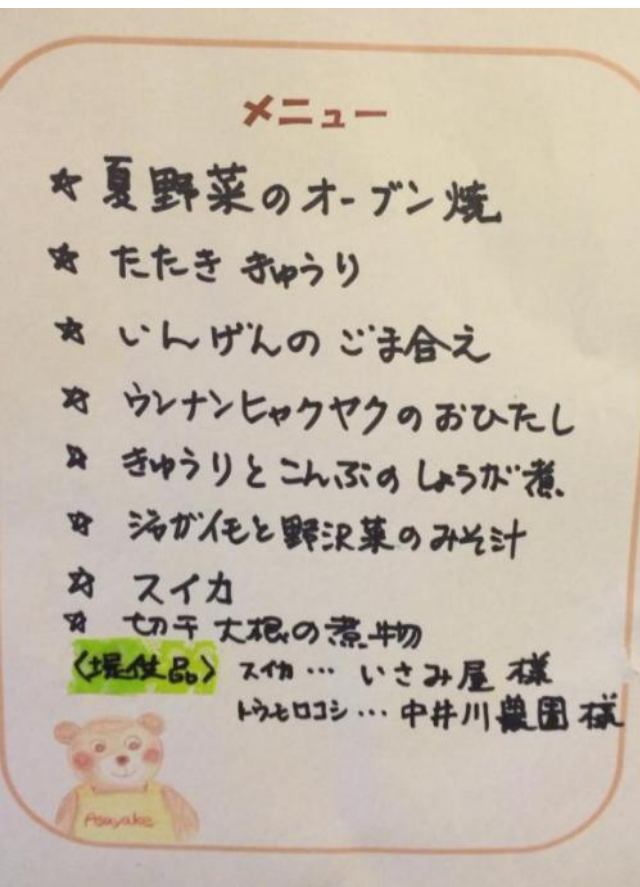 メニュー
☆ 夏野菜のオーブン焼
☆ たたき きゅうり
☆ いんげんの ごま合え
☆ ウンナンヒャクヤクのおひたし
☆ きゅうりとこんぶのしょうが煮
☆ ジャガイモと野沢菜のみそ汁
☆ スイカ
☆ 切干大根の煮物
〈提供品〉 スイカ… いさみ屋 様
トウモロコシ… 中井川農園 様
Asayake